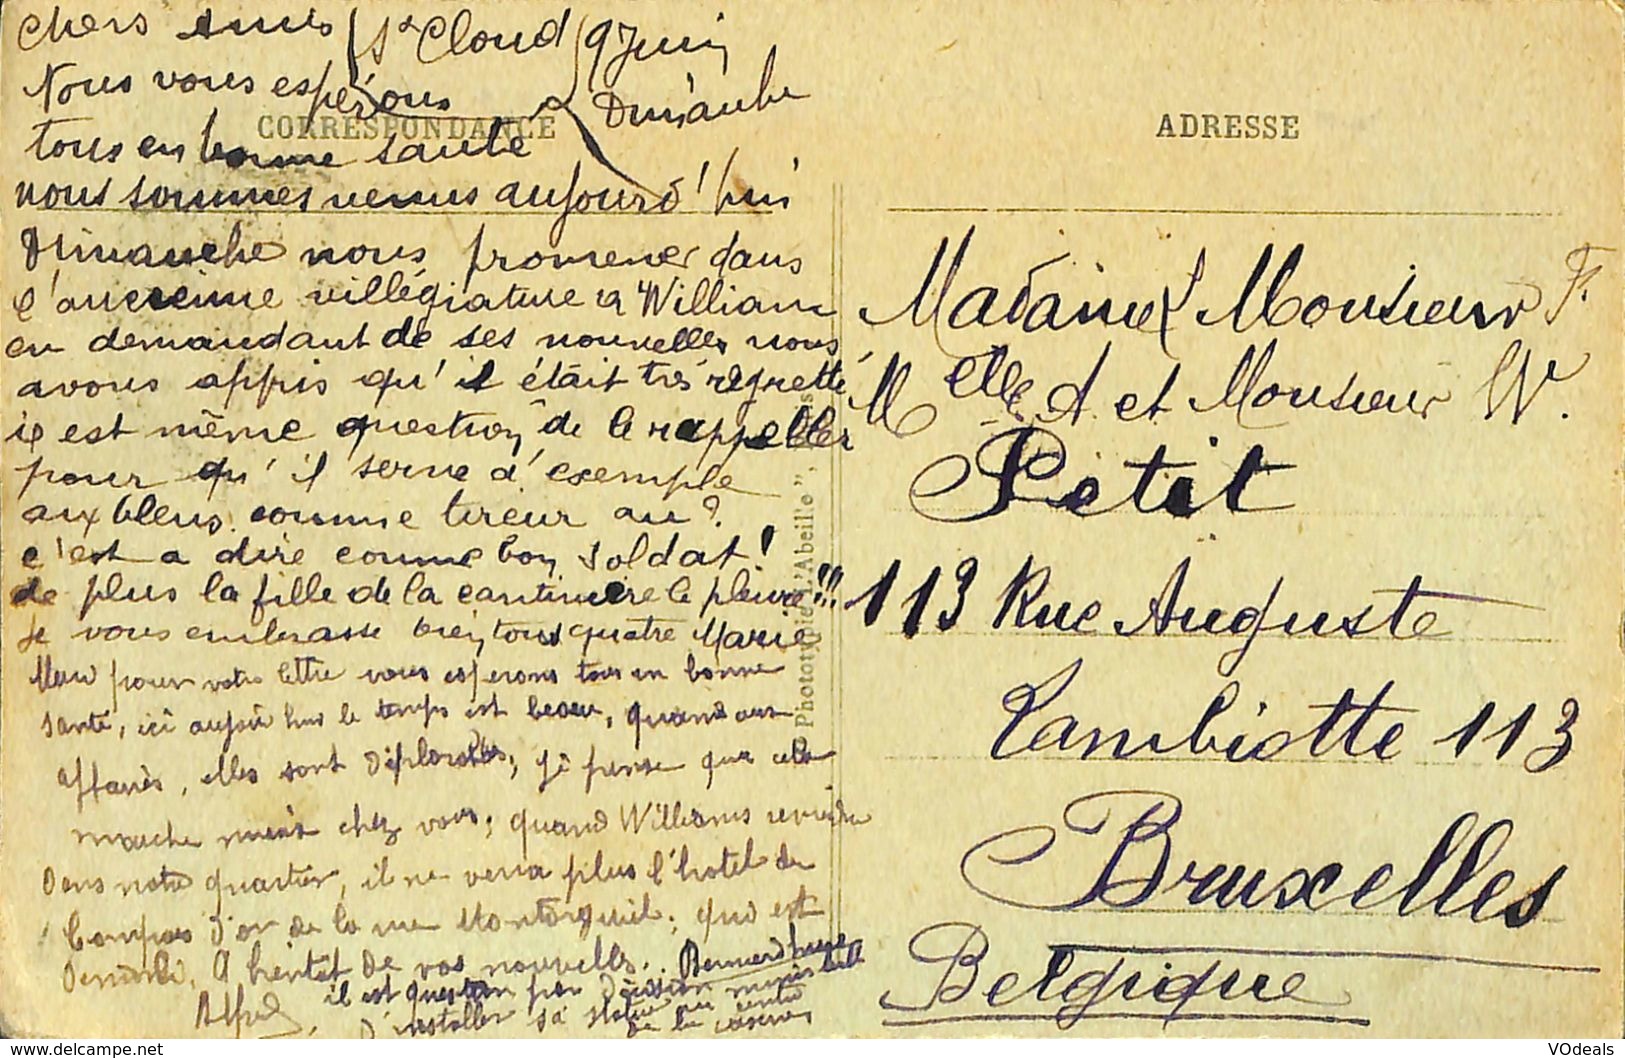 Chers amis
St Cloud
9 Juin
Dimanche
Nous vous espérons
CORRESPONDANCE
tous en bonne santé
nous sommes venus aujourd'hui
Dimanche nous promener dans
l'ancienne villégiature à William
en demandant de ses nouvelles nous
avons appris qu'il était très regretté
il est même question de le rappeller
pour qu'il serve d'exemple
aux bleus comme tireur au ?
c'est a dire comme bon soldat !
de plus la fille de la cantinière le pleure !!!
Je vous embrasse bien tous quatre Marie
Merci pour votre lettre vous esperons tous en bonne
santé, ici aujourd'hui le temps est beau, quand aux
affaires, elles sont déplorables, je pense que cela
marche mieux chez vous; quand Williams reviendra
dans notre quartier, il ne verra plus l'hotel du
Compas d'or de la rue Montorgueil; qui est
démoli. A bientot de vos nouvelles.
Alfred
il est question par
d'installer sa statue au
centre
de la caserne
Phototypie "L'Abeille",
ADRESSE
Madame & Monsieur F.
Melle A. et Monsieur W.
Petit
113 Rue Auguste
Lambiotte 113
Bruxelles
Belgique
www.delcampe.net
VOdeals